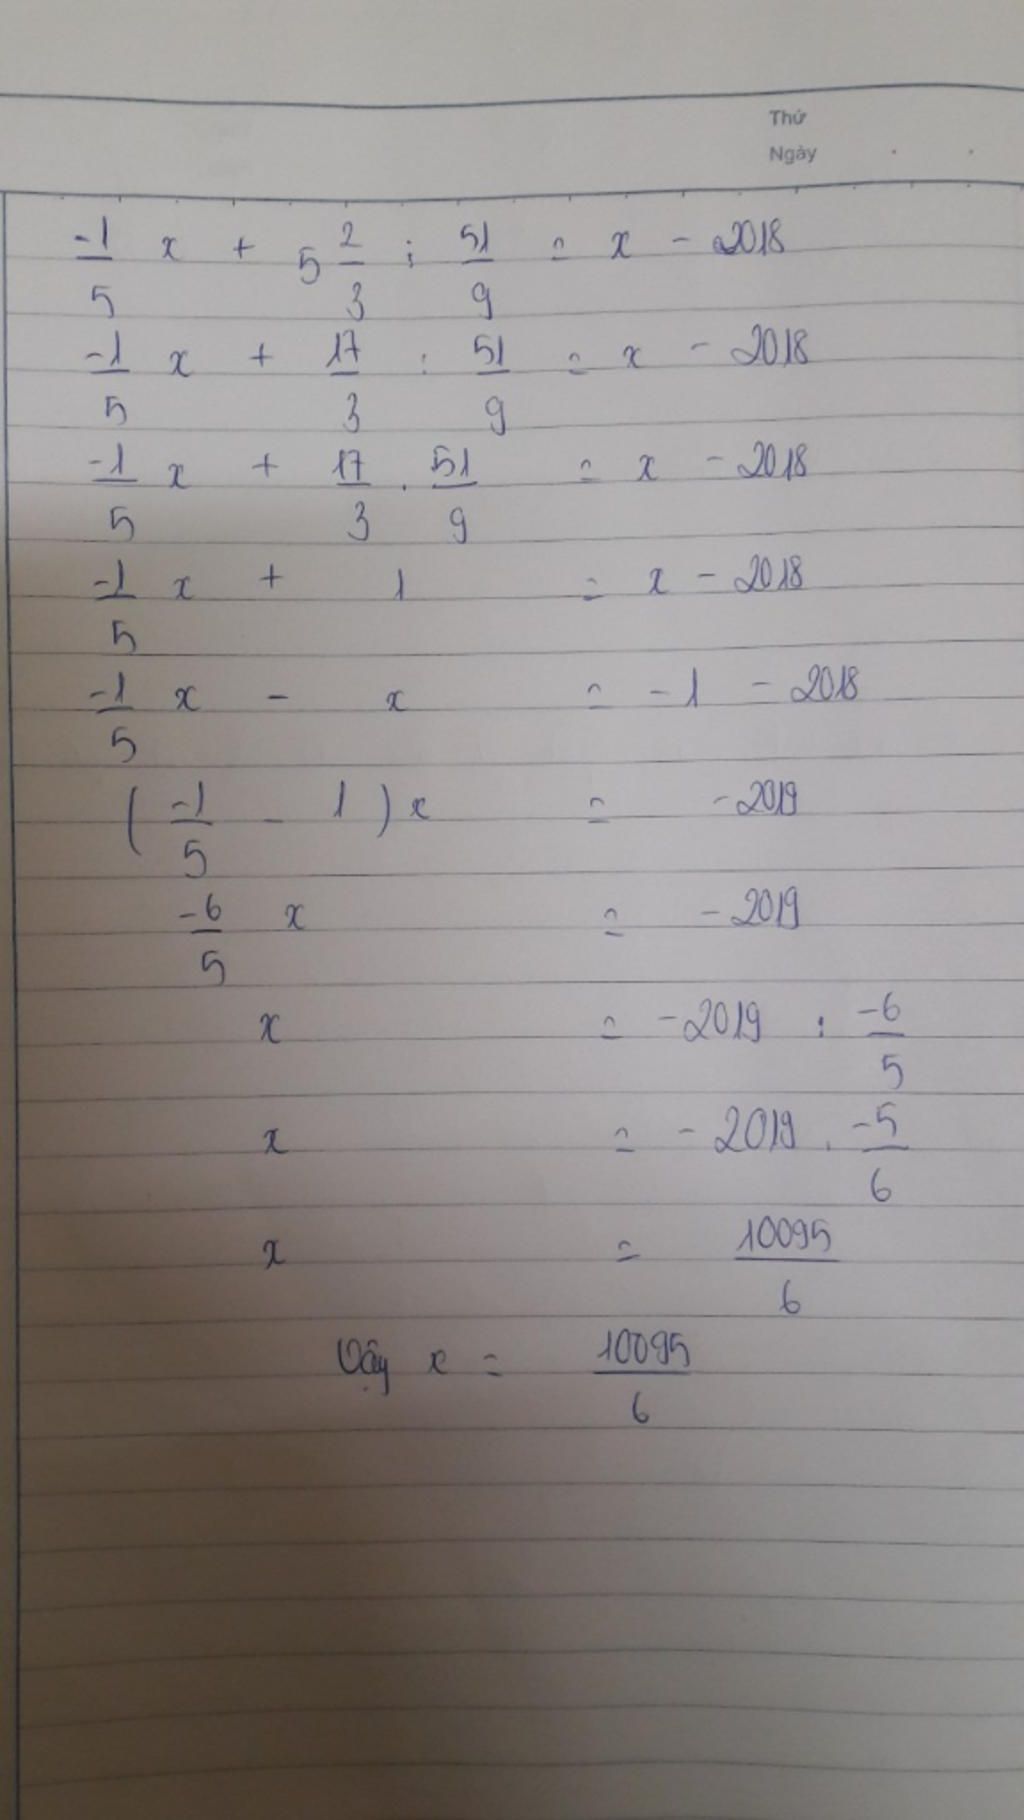 Thứ
Ngày
-1/5 x + 5 2/3 : 51/9 = x - 2018
-1/5 x + 17/3 : 51/9 = x - 2018
-1/5 x + 17/3 . 51/9 = x - 2018
-1/5 x + 1 = x - 2018
-1/5 x - x = -1 - 2018
(-1/5 - 1)x = -2019
-6/5 x = -2019
x = -2019 : -6/5
x = -2019 . -5/6
x = 10095/6
Vậy x = 10095/6